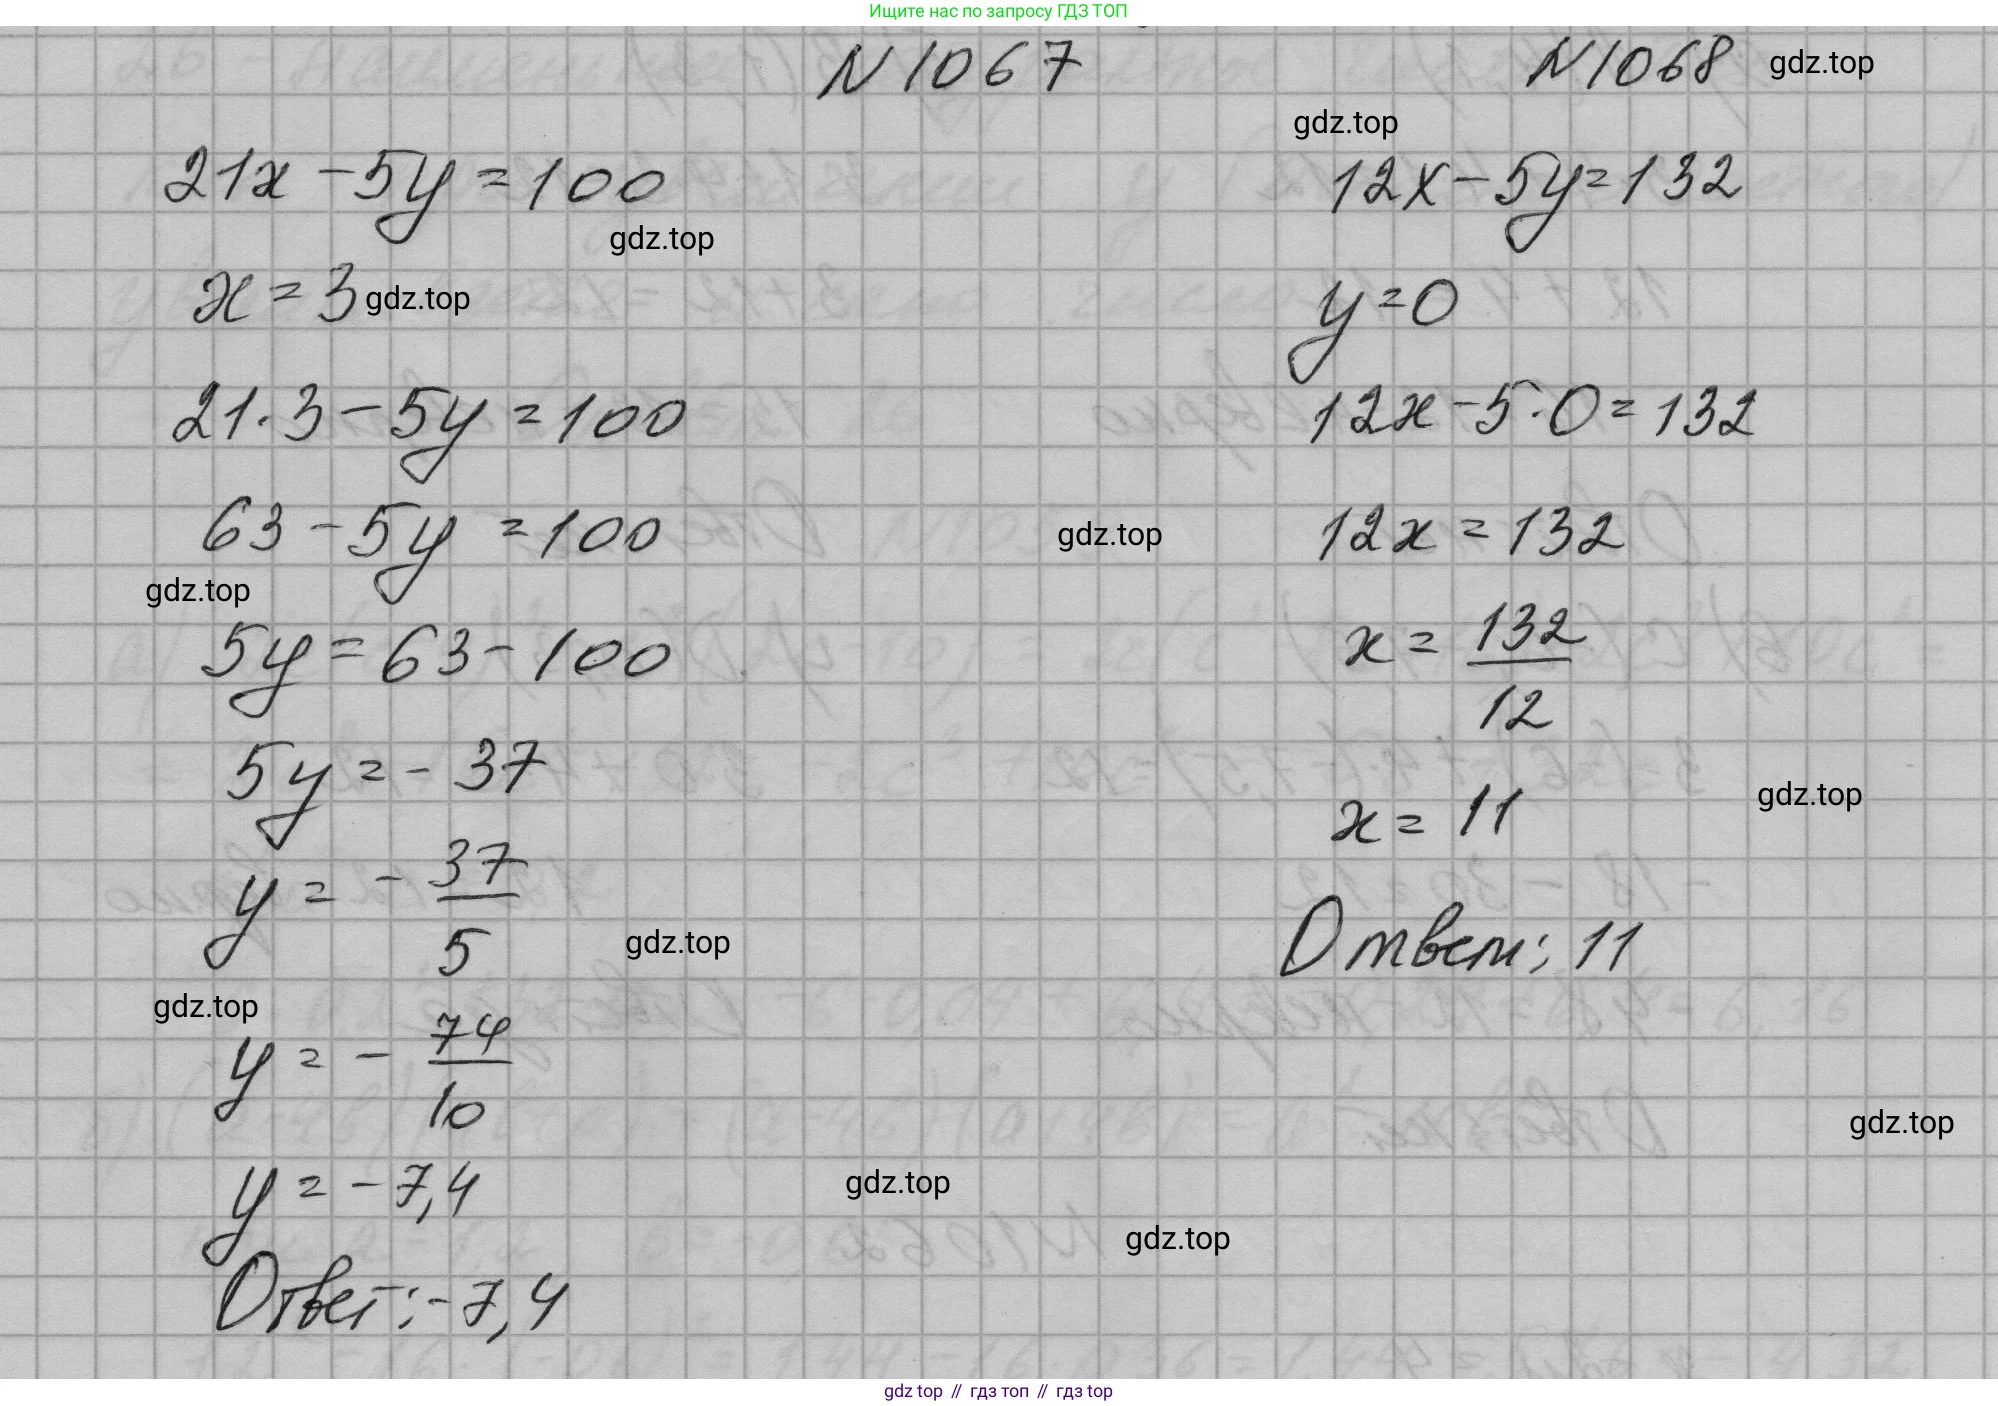 Ищите нас по запросу ГДЗ ТОП
N 1067
21x - 5y = 100
gdz.top
x = 3 gdz.top
21 · 3 - 5y = 100
63 - 5y = 100
gdz.top
5y = 63 - 100
5y = - 37
y = - 37/5
gdz.top
gdz.top
y = - 74/10
y = - 7,4
Ответ: - 7,4
gdz.top
gdz.top
gdz.top
N 1068 gdz.top
gdz.top
12x - 5y = 132
y = 0
12x - 5 · 0 = 132
12x = 132
x = 132/12
gdz.top
x = 11
Ответ: 11
gdz.top
gdz top // гдз топ // гдз top